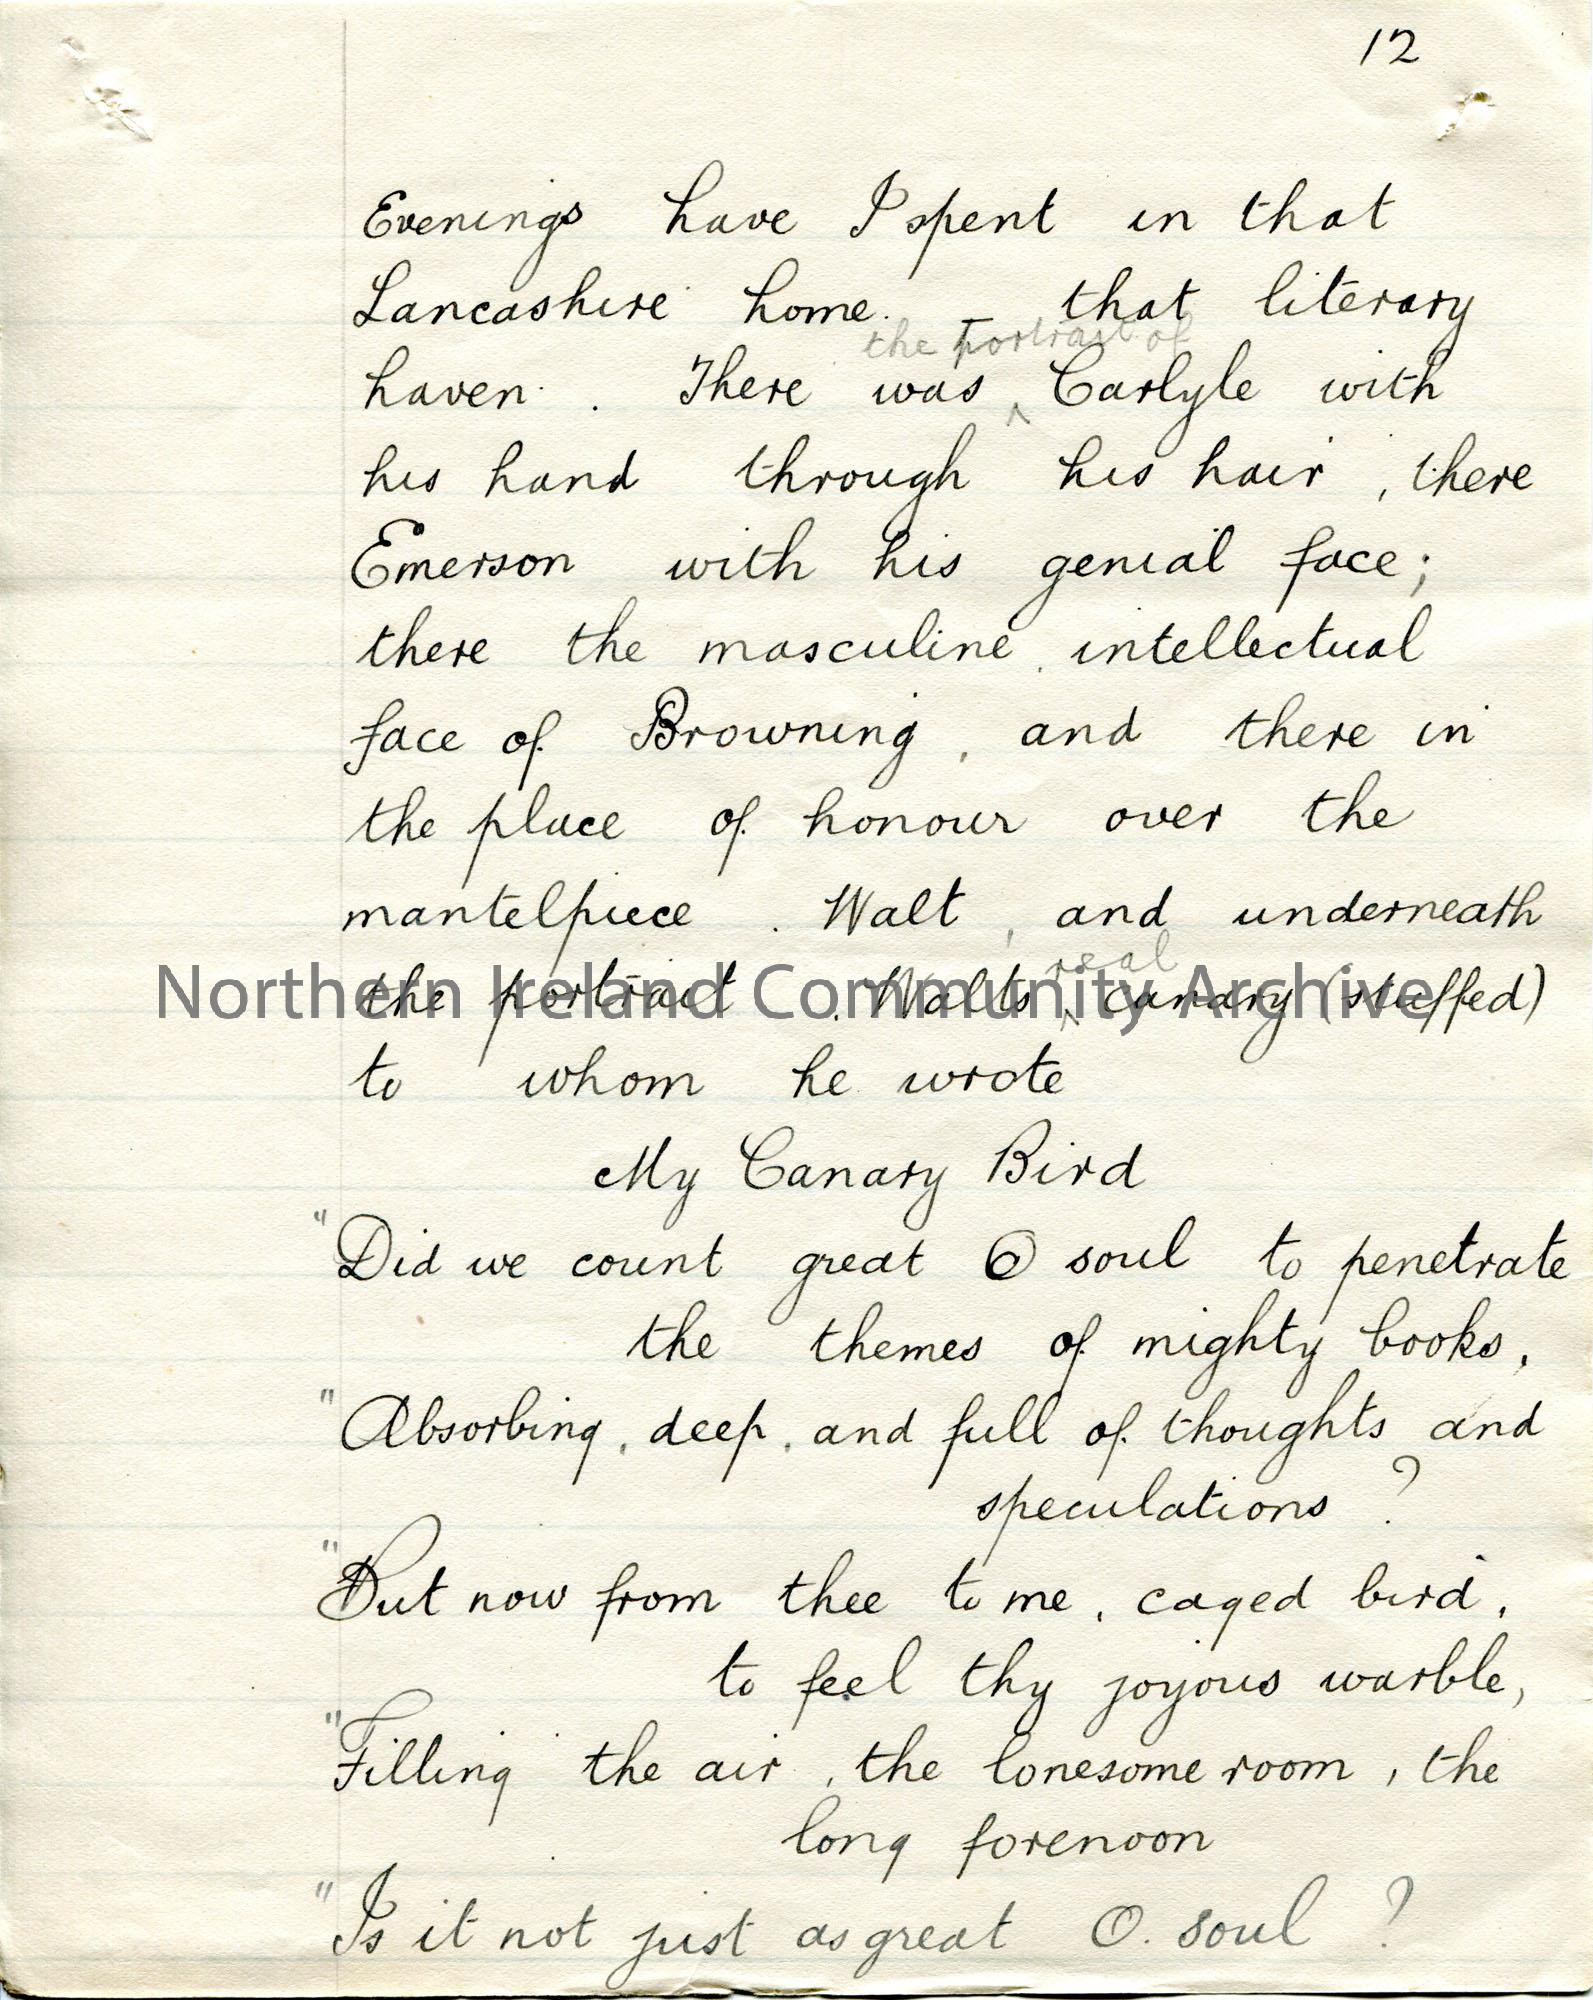 12
Evenings have I spent in that
Lancashire home. – that literary
the portrait of
haven. There was ^ Carlyle with
his hand through his hair, there
Emerson with his genial face;
there the masculine, intellectual
face of Browning, and there in
the place of honour over the
mantelpiece. Walt, and underneath
real
the portrait. Walts ^ canary (stuffed)
Northern Ireland Community Archive
to whom he wrote
My Canary Bird
"Did we count great O soul to penetrate
the themes of mighty books,
"Absorbing, deep, and full of thoughts and
speculations ?
"But now from thee to me, caged bird,
to feel thy joyous warble,
"Filling the air, the lonesome room, the
long forenoon
"Is it not just as great O. soul ?